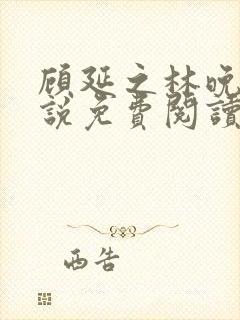 顾延之林晚
説免費閱讀
西告